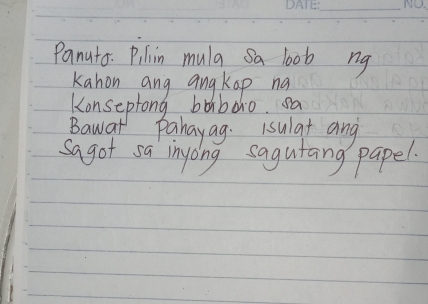 DATE: NO.
Panuto. Piliin mula sa loob ng
kahon ang angkop na
konseptong bubuo sa
Bawat pahayag. isulat ang
sagot sa inyong sagutang papel.